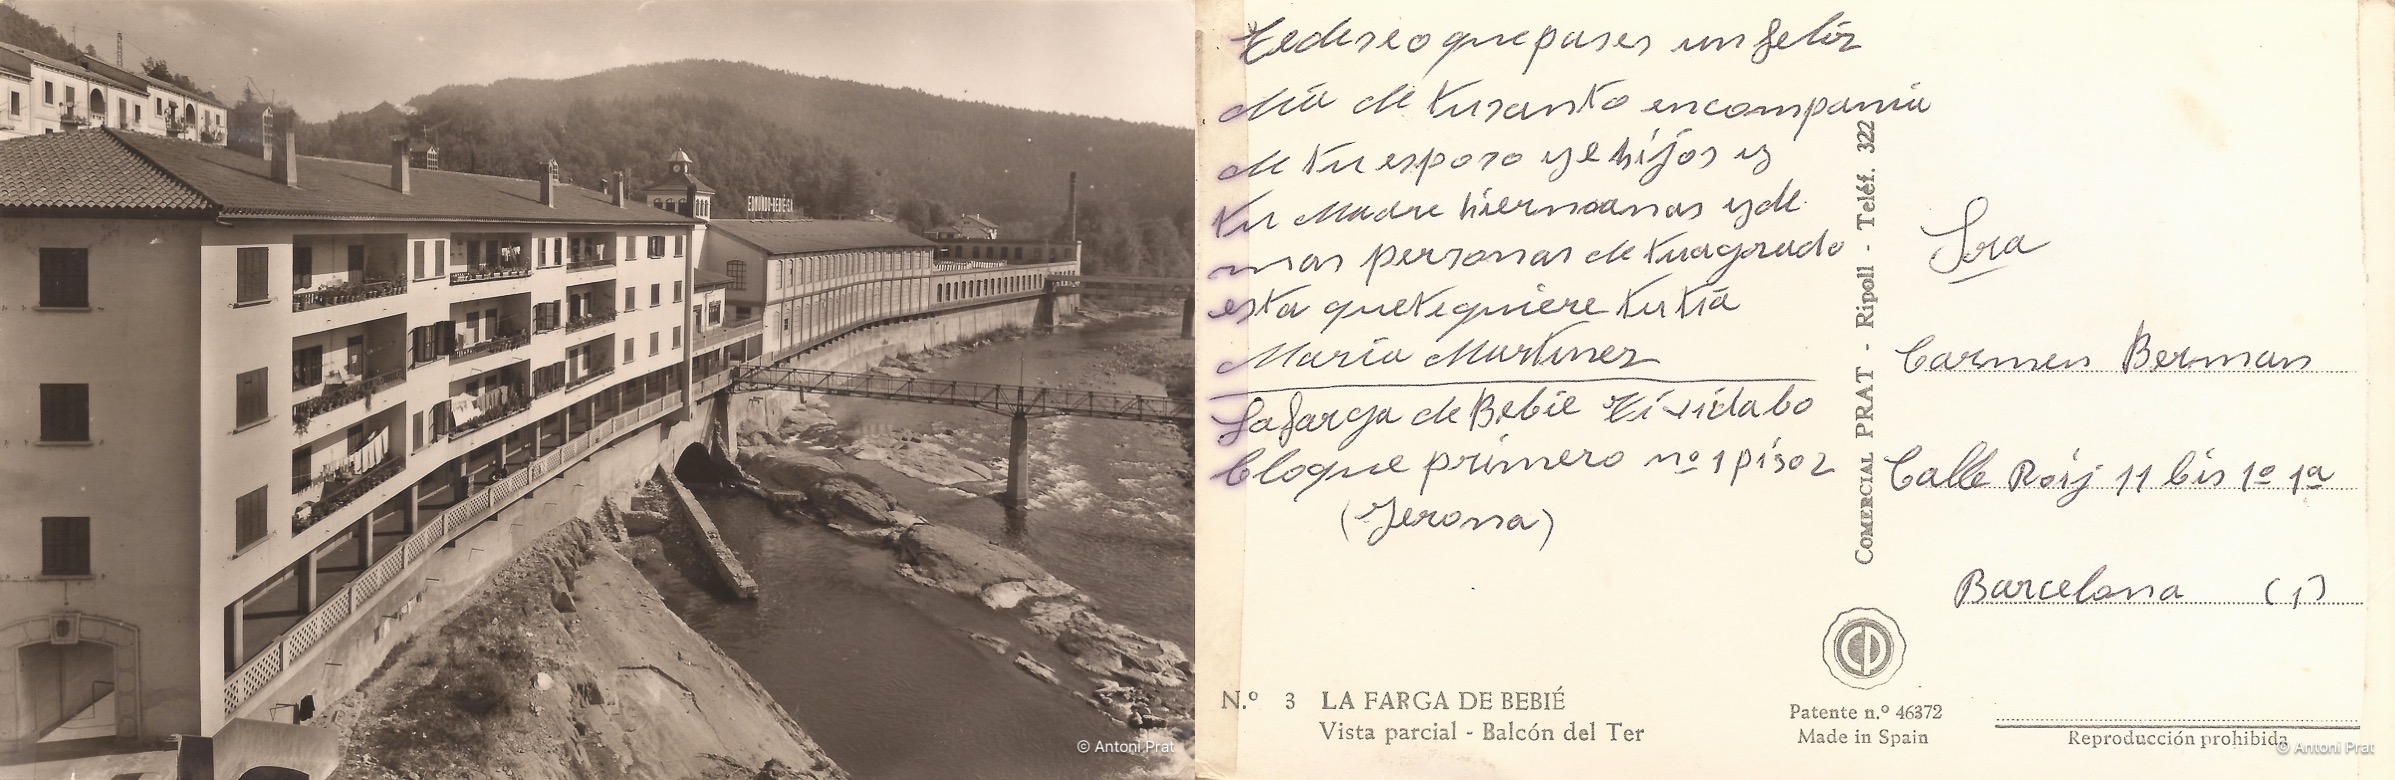 EDMUNDO BEBIÉ S.A.
© Antoni Prat
Tedeseo que pases un feliz
dia de tu santo en compania
de tu esposo y e hijos y
tu Madre hiermanas y de
mas personas de tuagrado
esta que te quiere tu tia
Maria Martinez
La farga de Bebie Tividabo
bloque primero nº 1 piso 2
(Jerona)
COMERCIAL PRAT - Ripoll - Teléf. 322
Sra
Carmen Berman
Calle Roig 11 bis 1º 1ª
Barcelona (1)
N.º 3 LA FARGA DE BEBIÉ
Vista parcial - Balcón del Ter
CP
Patente n.º 46372
Made in Spain
Reproducción prohibida
© Antoni Prat